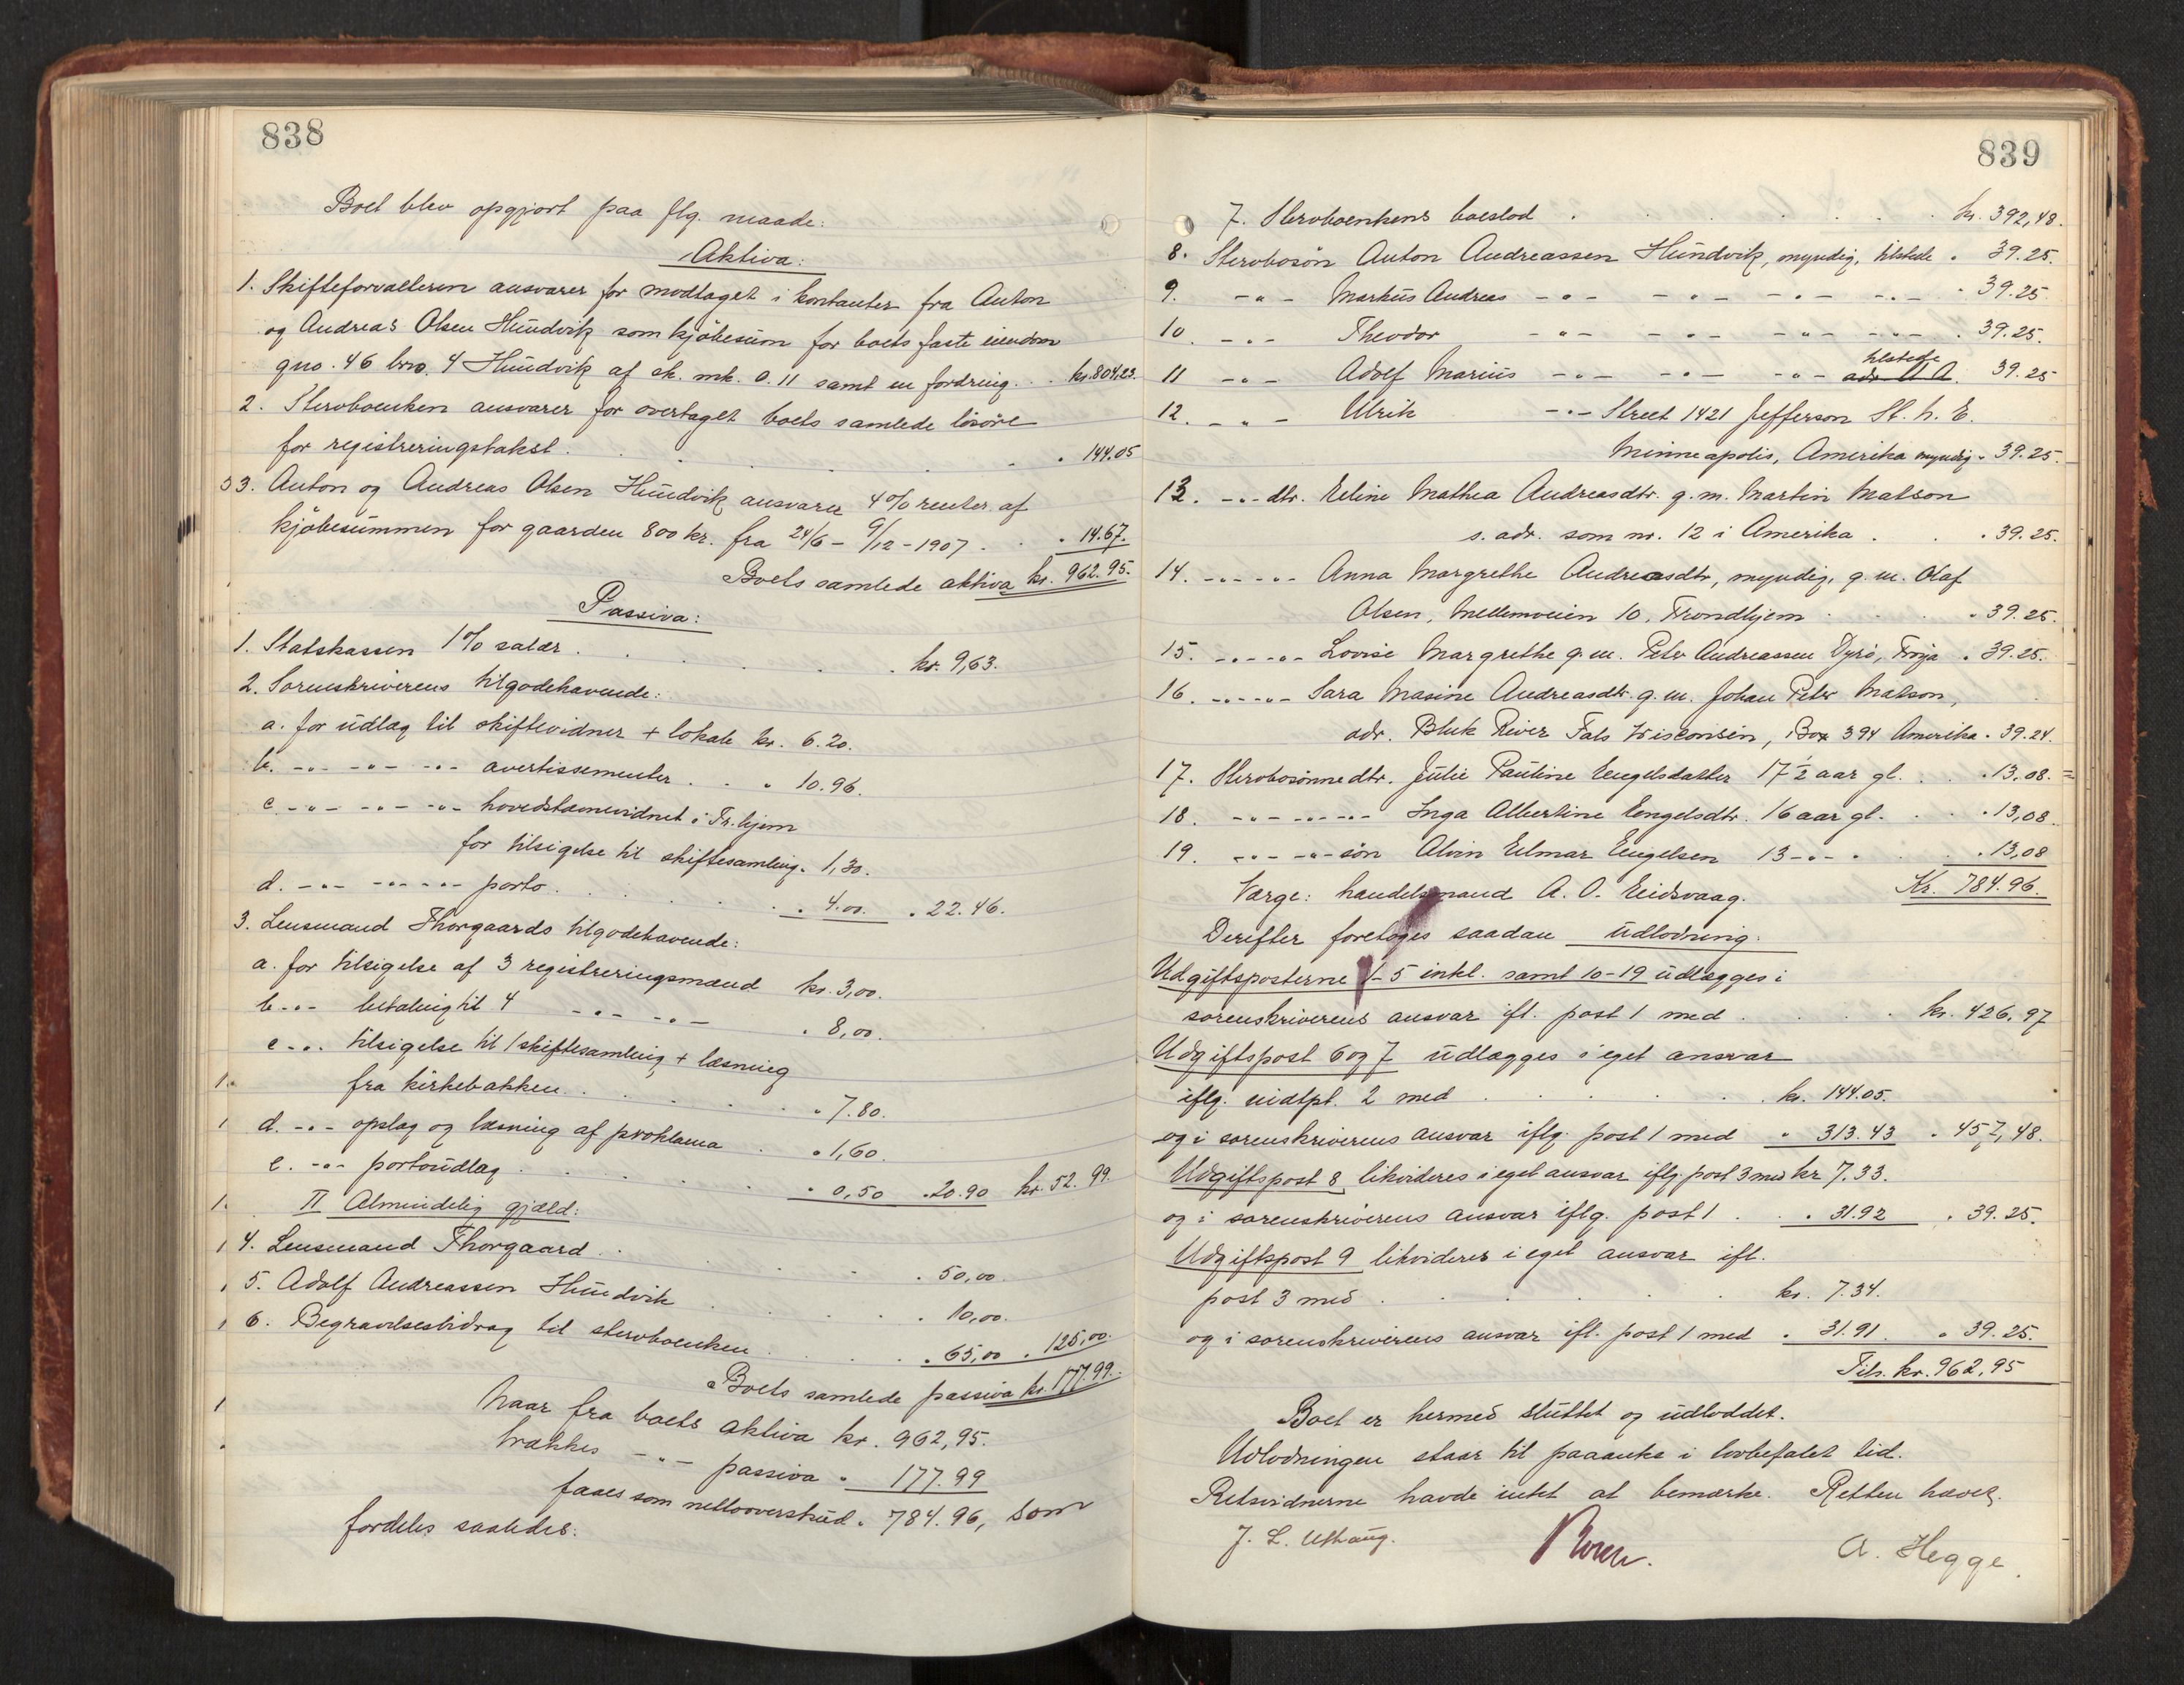 838
Boet blev opgjort paa flg. maade:
Aktiva:
1. Skifteforvalteren ansvarer for modtaget i kontanter fra Anton
og Andreas Olsen Hundvik som kjöbesum for boets faste eiendom
gno. 46 bno. 4 Hundvik af sk. mk. 0.11 samt en fordring . . kr. 804,23.
2. Stervboenken ansvarer for overtaget boets samlede lösöre
for registreringstakst . . . . . . 144.05
3. Anton og Andreas Olsen Hundvik ansvarer 4 % renter af
kjöbesummen for gaarden 800 kr. fra 24/6 - 9/12 - 1907 . . . 14.67.
Boets samlede aktiva kr. 962.95.
Passiva:
1. Statskassen 1 % salær . . . . . kr. 9,63.
2. Sorenskriverens tilgodehavende:
a. for udlæg til skiftevidner + lokale kr. 6.20.
b. -"- -"- -"- avertissementer . . " 10.96.
c -"- -"- -"- hovedstævnevidnet i Tr.hjem
for tilsigelse til skiftesamling. 1,30.
d. -"- -"-"- porto . . . . . " 4.00. " 22.46.
3. Lensmand Thorgaards tilgodehavende:
a. for tilsigelse af 3 registreringsmænd kr. 3,00.
b -"- betaling til 4 -"- -"- " 8,00.
c -"- tilsigelse til 1 skiftesamling + læsning
fra kirkebakken . . . . . " 7.80.
d. -"- opslag og læsning af proklama . " 1,60.
e. -"- portoudlæg . . . . . " 0,50 " 20.90 kr. 52.99.
II Almindelig gjæld:
4. Lensmand Thorgaard . . . . . 50,00.
5. Adolf Andreassen Hundvik . . . . 10,00.
6. Begravelsesbidrag til stervboenken . . . . " 65,00 " 125,00.
Boets samlede passiva kr. 177.99.
Naar fra boets aktiva kr. 962,95.
trækkes -"- passiva " 177.99
faaes som nettooverskud " 784.96, som
fordeles saaledes:
839
7. Stervboenkens boeslod . . . . . . kr. 392,48.
8. Stervbosön Anton Andreassen Hundvik, myndig, tilstede " 39.25.
9. -"- Markus Andreas -"- -"- -"- -"- " 39.25
10. -"- Theodor -"- -"- -"- -"- " 39.25.
11 -"- Adolf Marius -"- -"- -"- tilstede adr. U A. 39.25
12. -"- Ulrik -"- Street 1421 Jefferson St. N. E.
Minneapolis, Amerika myndig " 39.25.
13. -"- dtr. Eline Mathea Andreasdtr. g. m. Martin Matson
s. adr. som nr. 12 i Amerika . . " 39.25.
14. -"-"- Anna Margrethe Andreasdtr, myndig, g. m. Olaf
Olsen, Mellemveien 10, Trondhjem . . . " 39.25.
15. -"-"- Lovise Margrethe g. m. Peter Andreassen Dyrö, Fröja " 39.25.
16. -"-"- Sara Masine Andreasdtr. g. m. Johan Peter Matson,
adr. Blek River Fals Wisconsin, Box 394 Amerika " 39.24.
17. Stervbosönnedtr. Julie Pauline Engelsdatter 17 1/2 aar gl. . . " 13,08.
18. -"- -"-"- Inga Albertine Engelsdtr. 16 aar gl. . . " 13,08.
19. -"- -"- sön Alvin Elmar Engelsen 13 -"- " . . " 13,08
Værge: handelsmand A. O. Eidsvaag. Kr. 784.96.
Derefter foretoges saadan udlodning.
Udgiftsposterne 1-5 inkl. samt 10-19 udlægges i
sorenskriverens ansvar ifl. post 1 med . . . . kr. 426.97
Udgiftspost 6 og 7 udlægges i eget ansvar
iflg. indtpt. 2 med . . . . . . kr. 144.05.
og i sorenskriverens ansvar iflg. post 1 med " 313.43 " 457,48.
Udgiftspost 8 likvideres i eget ansvar iflg. post 3 med kr 7.33.
og i sorenskriverens ansvar iflg. post 1 . . " 31.92 " 39.25.
Udgiftspost 9 likvideres i eget ansvar ifl.
post 3 med . . . . . . kr. 7.34.
og i sorenskriverens ansvar ifl. post 1 med " 31.91 " 39.25.
Tils. kr. 962,95
Boet er hermed sluttet og udloddet.
Udlodningen staar til paaanke i lovbefalet tid.
Retsvidnerne havde intet at bemærke. Retten hævet.
J. L. Uthaug.
A. Hegge.